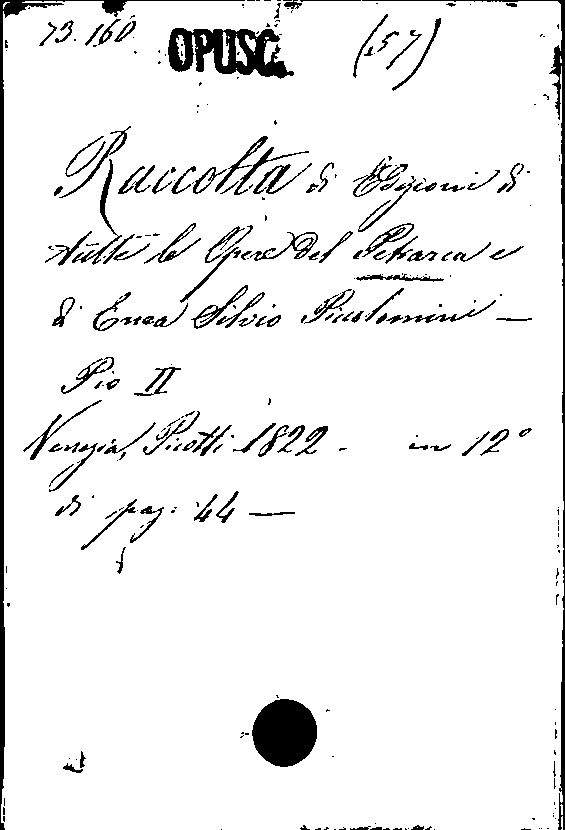 73.160. OPUSC. (57)
Raccolta di Edizioni di
tutte le Opere del Petrarca e
di Enea Silvio Picolomini —
Pio II
Venezia, Picotti 1822 - in 12°
di pag: 44 —